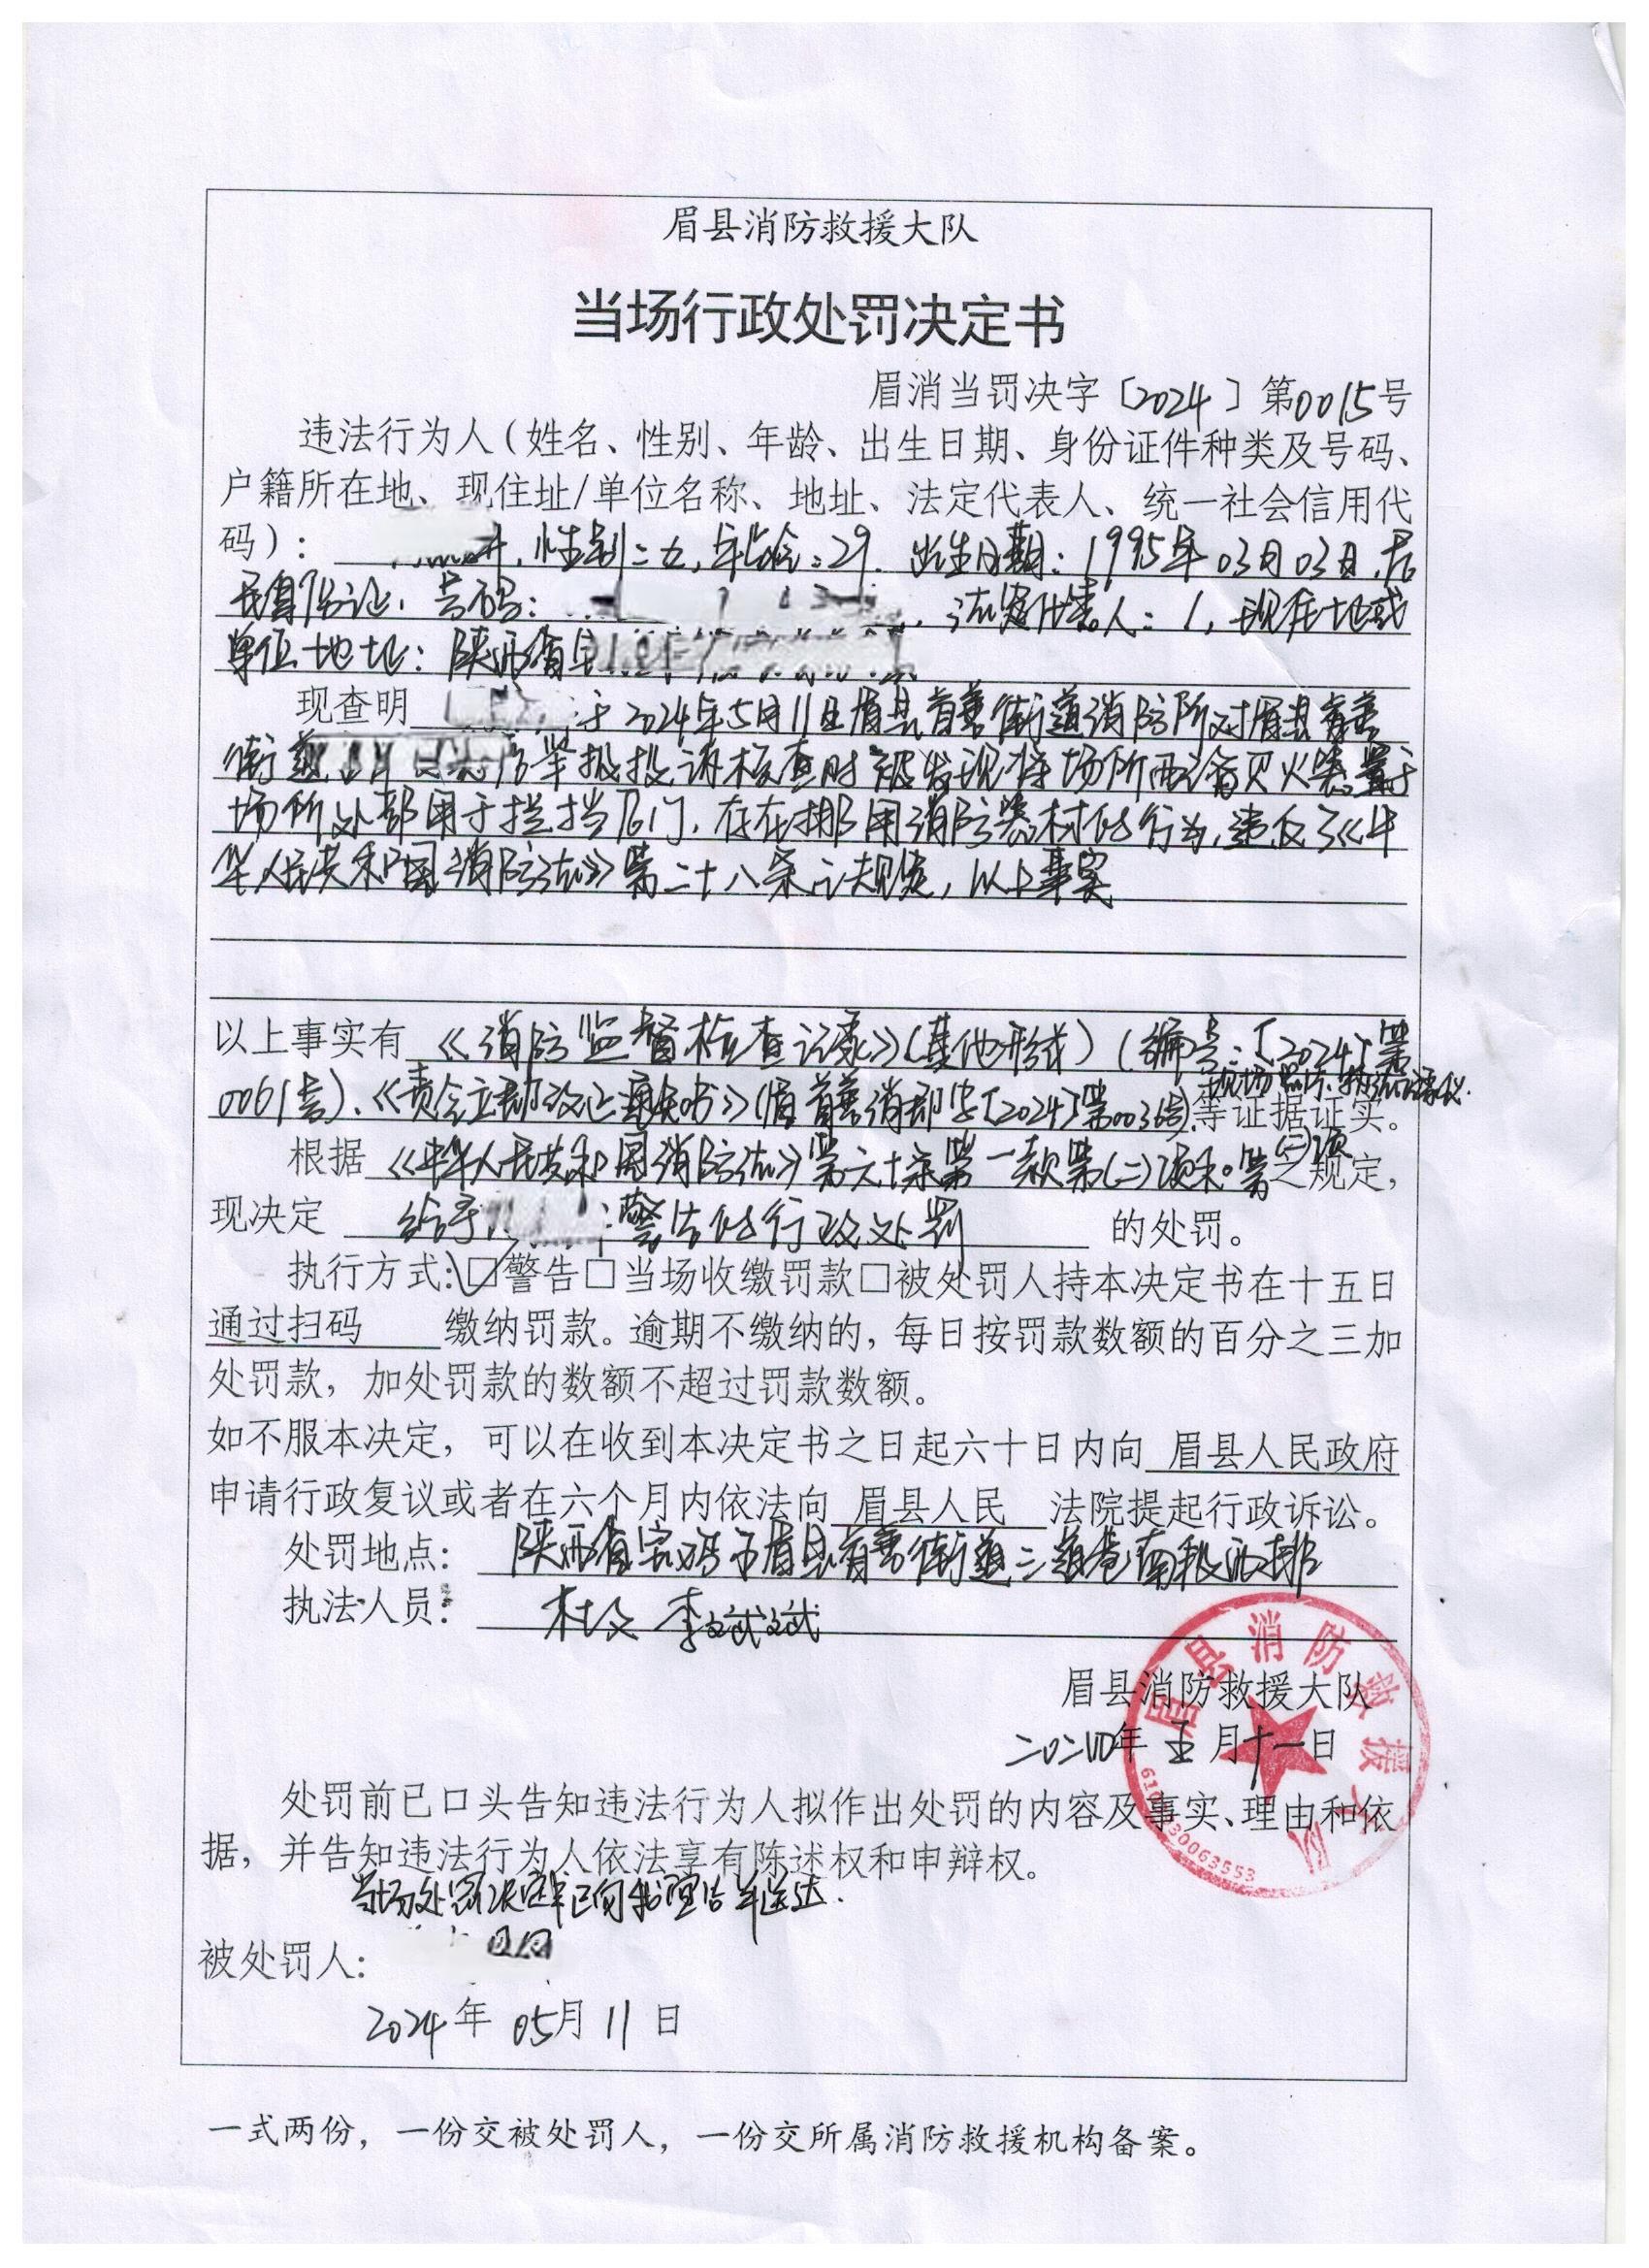 眉县消防救援大队
当场行政处罚决定书
眉消当罚决字〔2024〕第0015号
违法行为人(姓名、性别、年龄、出生日期、身份证件种类及号码、
户籍所在地、现住址/单位名称、地址、法定代表人、统一社会信用代
码): 性别:女,年龄:29. 出生日期:1995年03月03日,居
民身份证,号码: 法定代表人:/,现住地或
单位地址:陕西省宝
现查明 于2024年5月11日眉县首善街道消防所对眉县首善
街道 举报投诉核查时被发现将场所配备灭火器置于
场所外部用于拦挡后门,存在挪用消防器材的行为,违反了《中
华人民共和国消防法》第二十八条之规定,以上事实
以上事实有《消防监督检查记录》(其他形式)(编号:〔2024〕第
0061号)、《责令立即改正通知书》(眉首善消即字〔2024〕第0036号)、现场照片、执法记录仪.等证据证实。
根据《中华人民共和国消防法》第六十条第一款第(二)项和第(三)项之规定,
现决定 给予 警告的行政处罚 的处罚。
执行方式:☑警告□当场收缴罚款□被处罚人持本决定书在十五日
通过扫码 缴纳罚款。逾期不缴纳的,每日按罚款数额的百分之三加
处罚款,加处罚款的数额不超过罚款数额。
如不服本决定,可以在收到本决定书之日起六十日内向 眉县人民政府
申请行政复议或者在六个月内依法向 眉县人民 法院提起行政诉讼。
处罚地点: 陕西省宝鸡市眉县首善街道三道巷南段西排
执法人员: 杜文 李斌斌
眉县消防救援大队
二〇二四年 五 月十一日
处罚前已口头告知违法行为人拟作出处罚的内容及事实、理由和依
据,并告知违法行为人依法享有陈述权和申辩权。
当场处罚决定书已向我宣告并送达.
被处罚人:
2024年 05月 11 日
眉县消防救援大队
一式两份,一份交被处罚人,一份交所属消防救援机构备案。